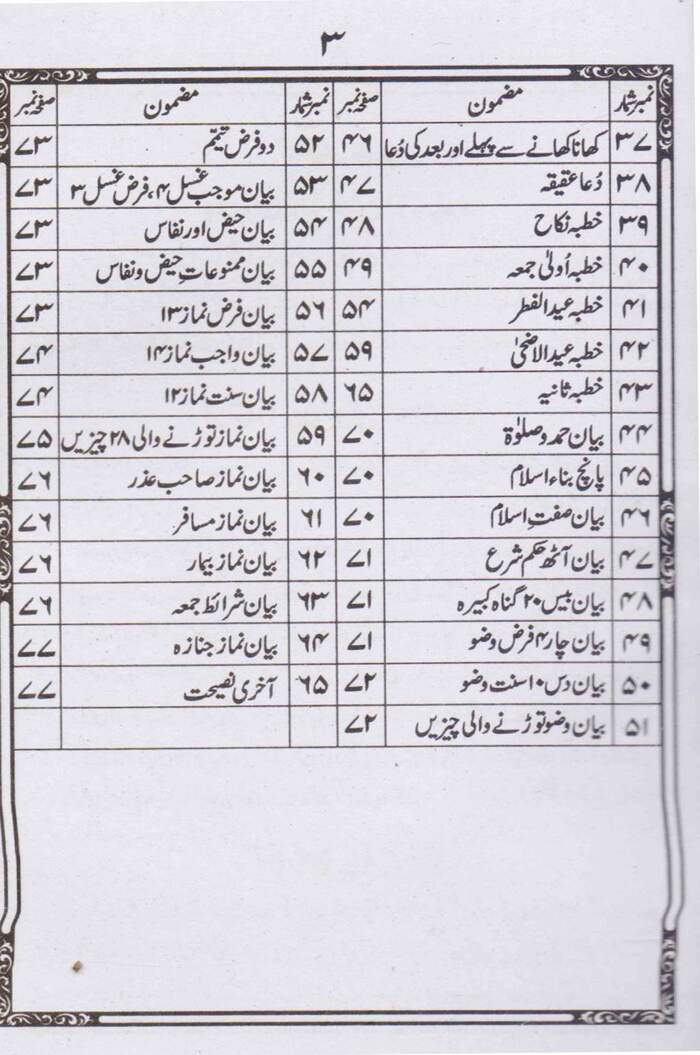 ۳
نمبر شمار مضمون صفحہ نمبر نمبر شمار مضمون صفحہ نمبر
۳۷ کھانا کھانے سے پہلے اور بعد کی دُعا ۴۶ ۵۲ دو فرض تیمّم ۷۳
۳۸ دُعا عقیقہ ۴۷ ۵۳ بیان موجب غسل ۴، فرض غسل ۳ ۷۳
۳۹ خطبہ نکاح ۴۸ ۵۴ بیان حیض اور نفاس ۷۳
۴۰ خطبہ اُولیٰ جمعہ ۴۹ ۵۵ بیان ممنوعاتِ حیض و نفاس ۷۳
۴۱ خطبہ عید الفطر ۵۴ ۵۶ بیان فرض نماز ۱۳ ۷۳
۴۲ خطبہ عید الاضحیٰ ۵۹ ۵۷ بیان واجب نماز ۱۴ ۷۴
۴۳ خطبہ ثانیہ ۶۵ ۵۸ بیان سنت نماز ۱۲ ۷۴
۴۴ بیان حمد و صلوٰۃ ۷۰ ۵۹ بیان نماز توڑنے والی ۲۸ چیزیں ۷۵
۴۵ پانچ بناء اسلام ۷۰ ۶۰ بیان نماز صاحب عذر ۷۶
۴۶ بیان صفتِ اسلام ۷۰ ۶۱ بیان نماز مسافر ۷۶
۴۷ بیان آٹھ حکم شرع ۷۱ ۶۲ بیان نماز بیمار ۷۶
۴۸ بیان بیس ۲۰ گناہ کبیرہ ۷۱ ۶۳ بیان شرائط جمعہ ۷۶
۴۹ بیان چار ۴ فرض وضو ۷۱ ۶۴ بیان نماز جنازہ ۷۷
۵۰ بیان دس ۱۰ سنت وضو ۷۲ ۶۵ آخری نصیحت ۷۷
۵۱ بیان وضو توڑنے والی چیزیں ۷۲